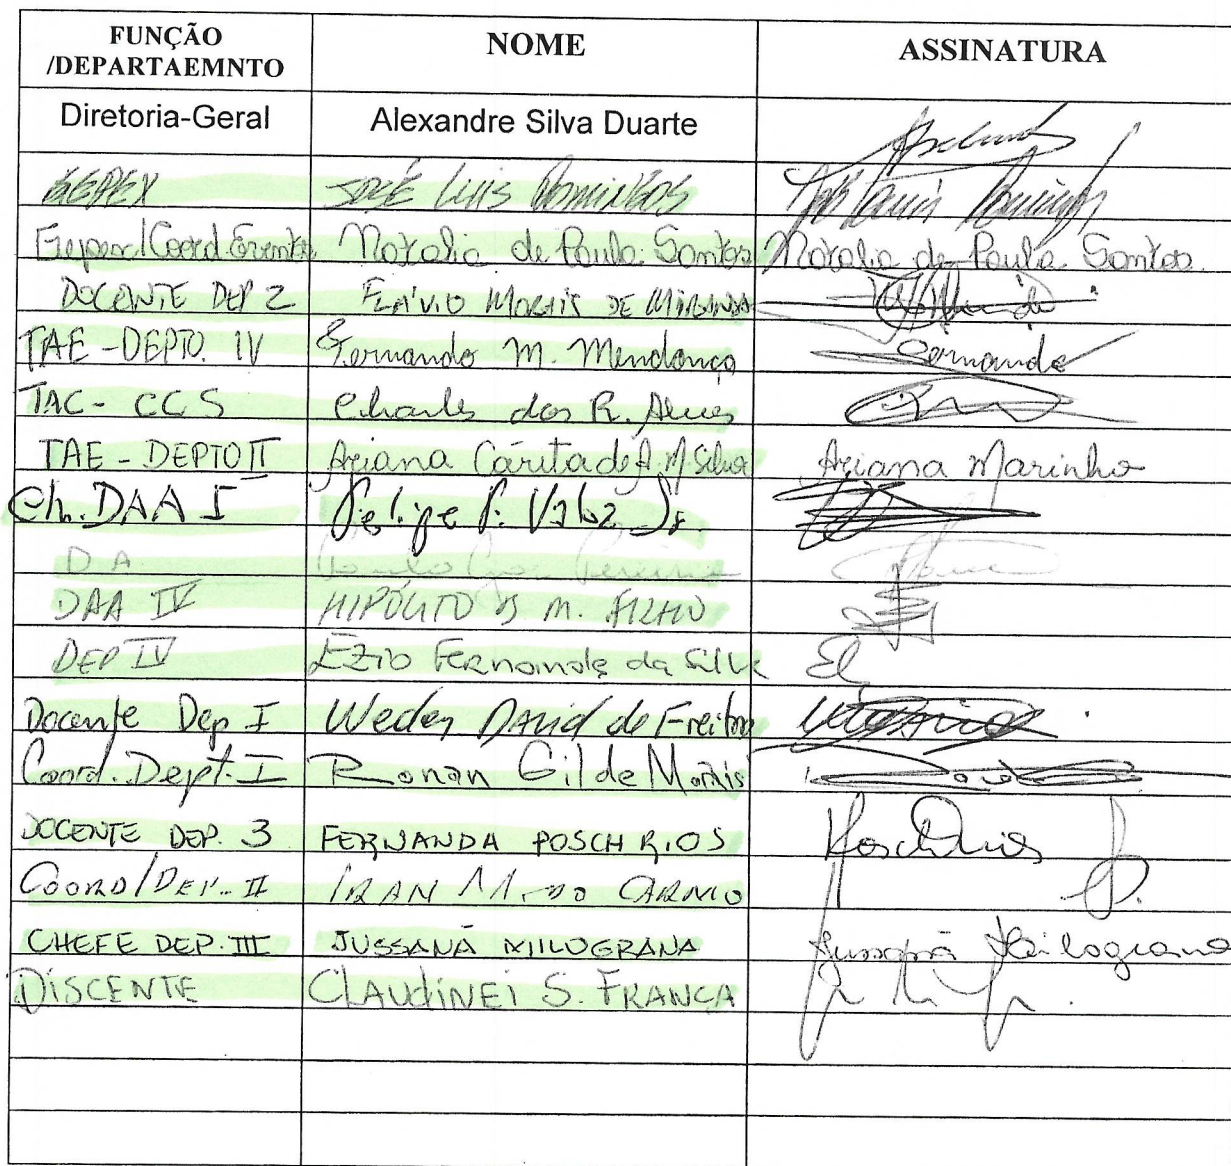 FUNÇÃO /DEPARTAEMNTO NOME ASSINATURA
Diretoria-Geral Alexandre Silva Duarte
GEPEX JOSÉ Luis Domingos
Gepex/Coord. Eventos Natalia de Paula Santos Natalia de Paula Santos
DOCENTE DEP 2 FLÁVIO MORAIS DE MIRANDA
TAE - DEPTO. IV Fernando M. Mendonça Fernando
TAE - CCS Charles dos R. Alves
TAE - DEPTO II Ariana Cárita de A. M. Silva Ariana Marinho
Ch. DAA I Felipe
D A
DAA IV HIPÓLITO M. FILHO
DEP IV Ezio Fernandes da Silva
Docente Dep I Weder David de Freitas
Coord. Dept. I Ronan Gil de Morais
DOCENTE DEP. 3 FERNANDA POSCH RIOS
COORD/DEP. II IRAN M. DO CARMO
CHEFE DEP. III JUSSANÃ MILOGRANA Jussanã Milograna
DISCENTE CLAUDINEI S. FRANCA